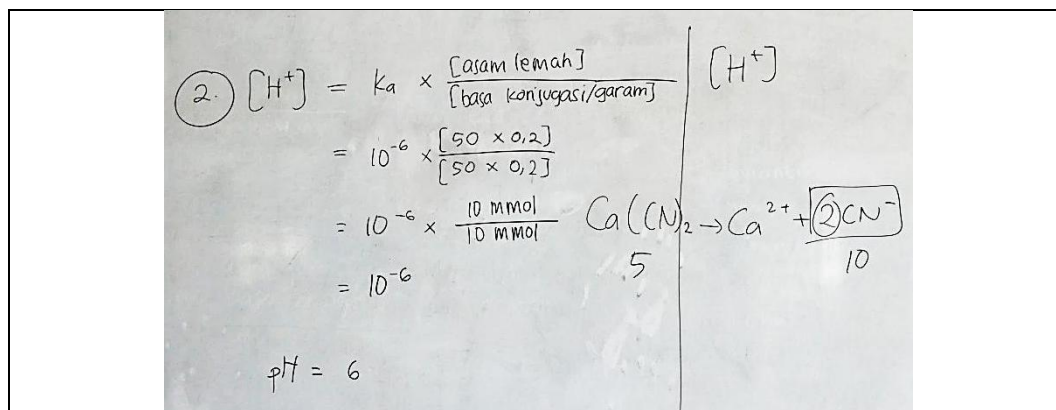 2. [H⁺] = Ka × [asam lemah] / [basa konjugasi/garam]
= 10⁻⁶ × [50 × 0,2] / [50 × 0,2]
= 10⁻⁶ × 10 mmol / 10 mmol
= 10⁻⁶
pH = 6
[H⁺]
Ca(CN)₂ → Ca²⁺ + 2CN⁻
5 10